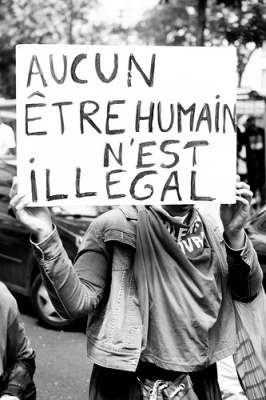 AUCUN
ÊTRE HUMAIN
N'EST
ILLEGAL